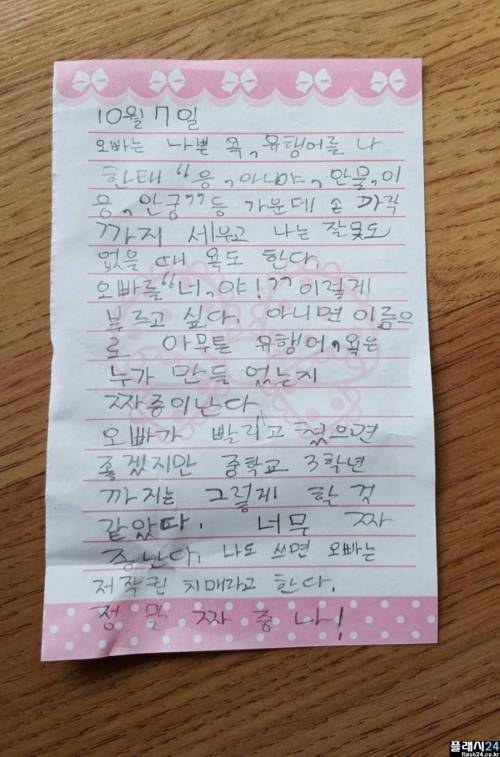 10월 7일
오빠는 나쁜 욕, 유행어를 나
한태 "응, 아니야, 안물, 이
응, 안궁" 등 가운데 손가락
까지 세우고 나는 잘못도
없을 때 욕도 한다.
오빠를 "너, 야!" 이렇게
부르고 싶다. 아니면 이름으
로 아무튼 유행어, 욕은
누가 만들 었는지
짜증이난다
오빠가 빨리고 쳤으면
좋겠지만 중학교 3학년
까지는 그렇게 할 것
같았다. 너무 짜
증난다. 나도 쓰면 오빠는
저작권 치매라고 한다.
정말 짜증나!
플래시24
flash24.co.kr